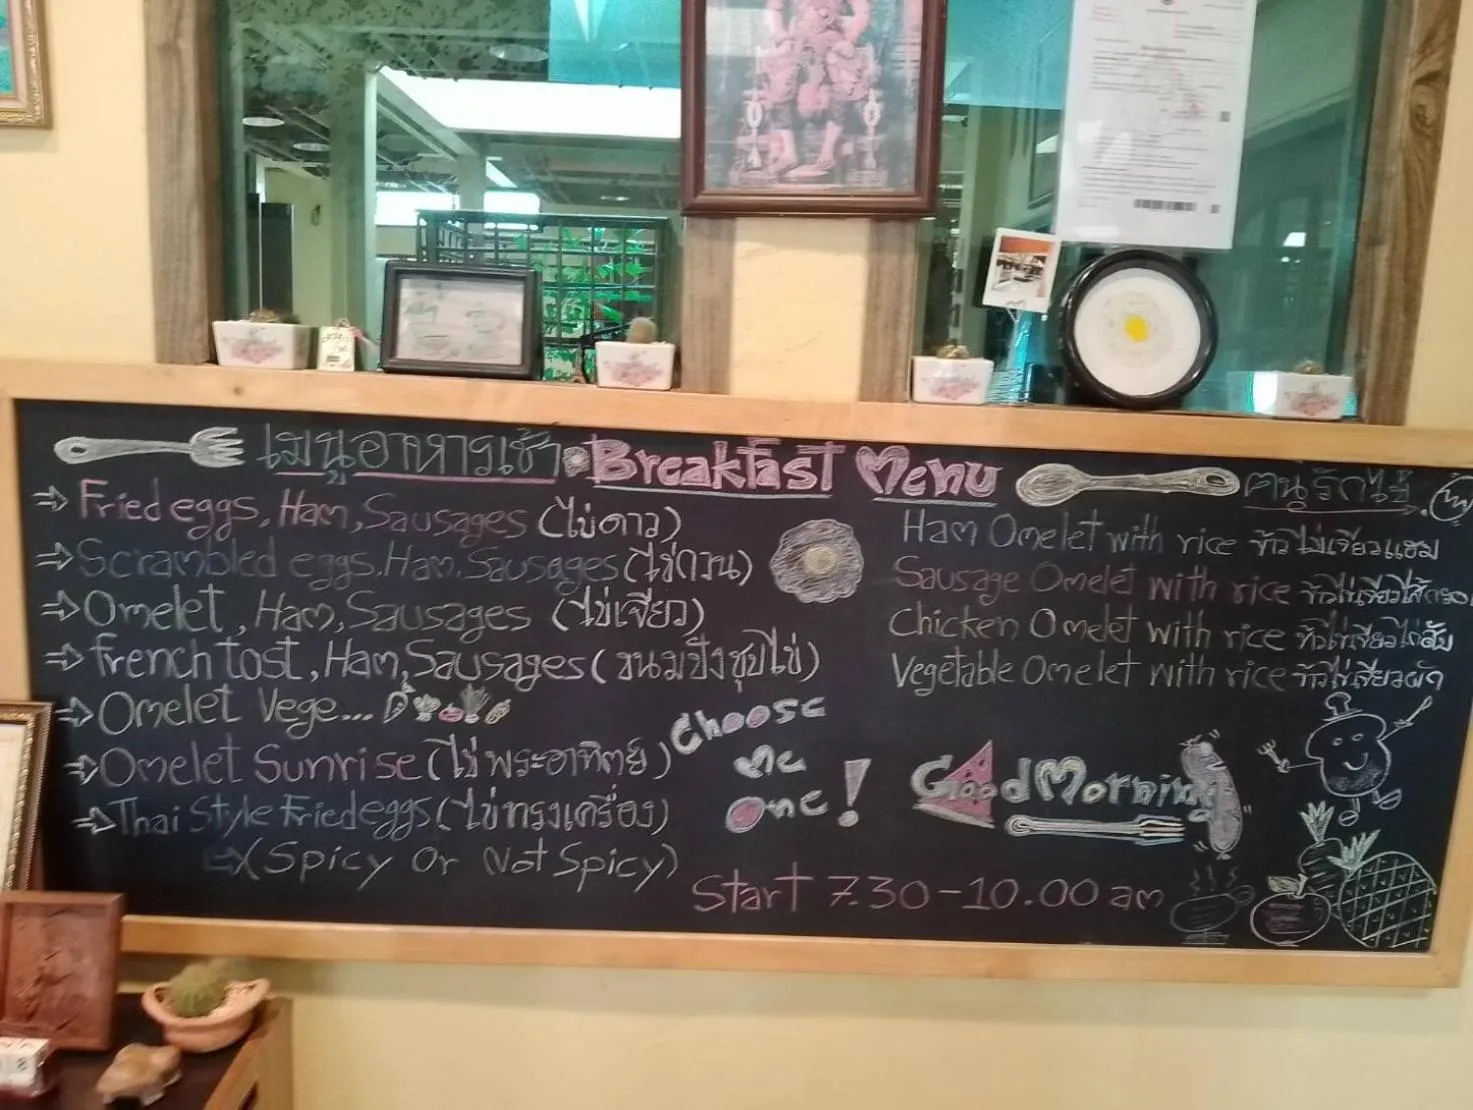 เมนูอาหารเช้า Breakfast Menu คนรักไข่
Fried eggs, Ham, Sausages (ไข่ดาว)
Scrambled eggs, Ham, Sausages (ไข่กวน)
Omelet, Ham, Sausages (ไข่เจียว)
french tost, Ham, Sausages (ขนมปังชุบไข่)
Omelet Vege...
Omelet Sunrise (ไข่พระอาทิตย์)
Thai Style Fried eggs (ไข่ทรงเครื่อง)
(Spicy Or Not Spicy)
Choose
me
one!
Ham Omelet with rice ข้าวไข่เจียวแฮม
Sausage Omelet with rice ข้าวไข่เจียวไส้กรอก
Chicken Omelet with rice ข้าวไข่เจียวไก่สับ
Vegetable Omelet with rice ข้าวไข่เจียวผัก
Good Morning
Start 7.30-10.00 am